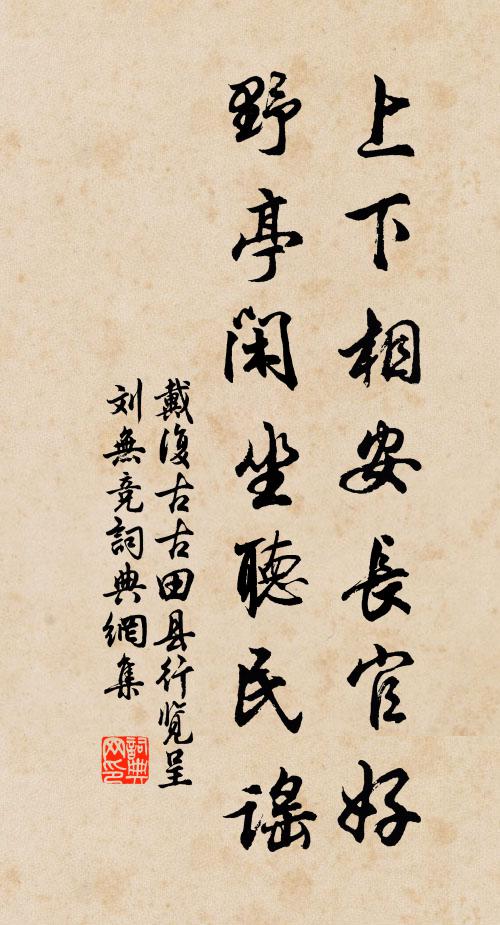 上下相安長官好
野亭閑坐聽民謠
戴復古古田县行览呈
刘無竞詞典網集
詞典
网印